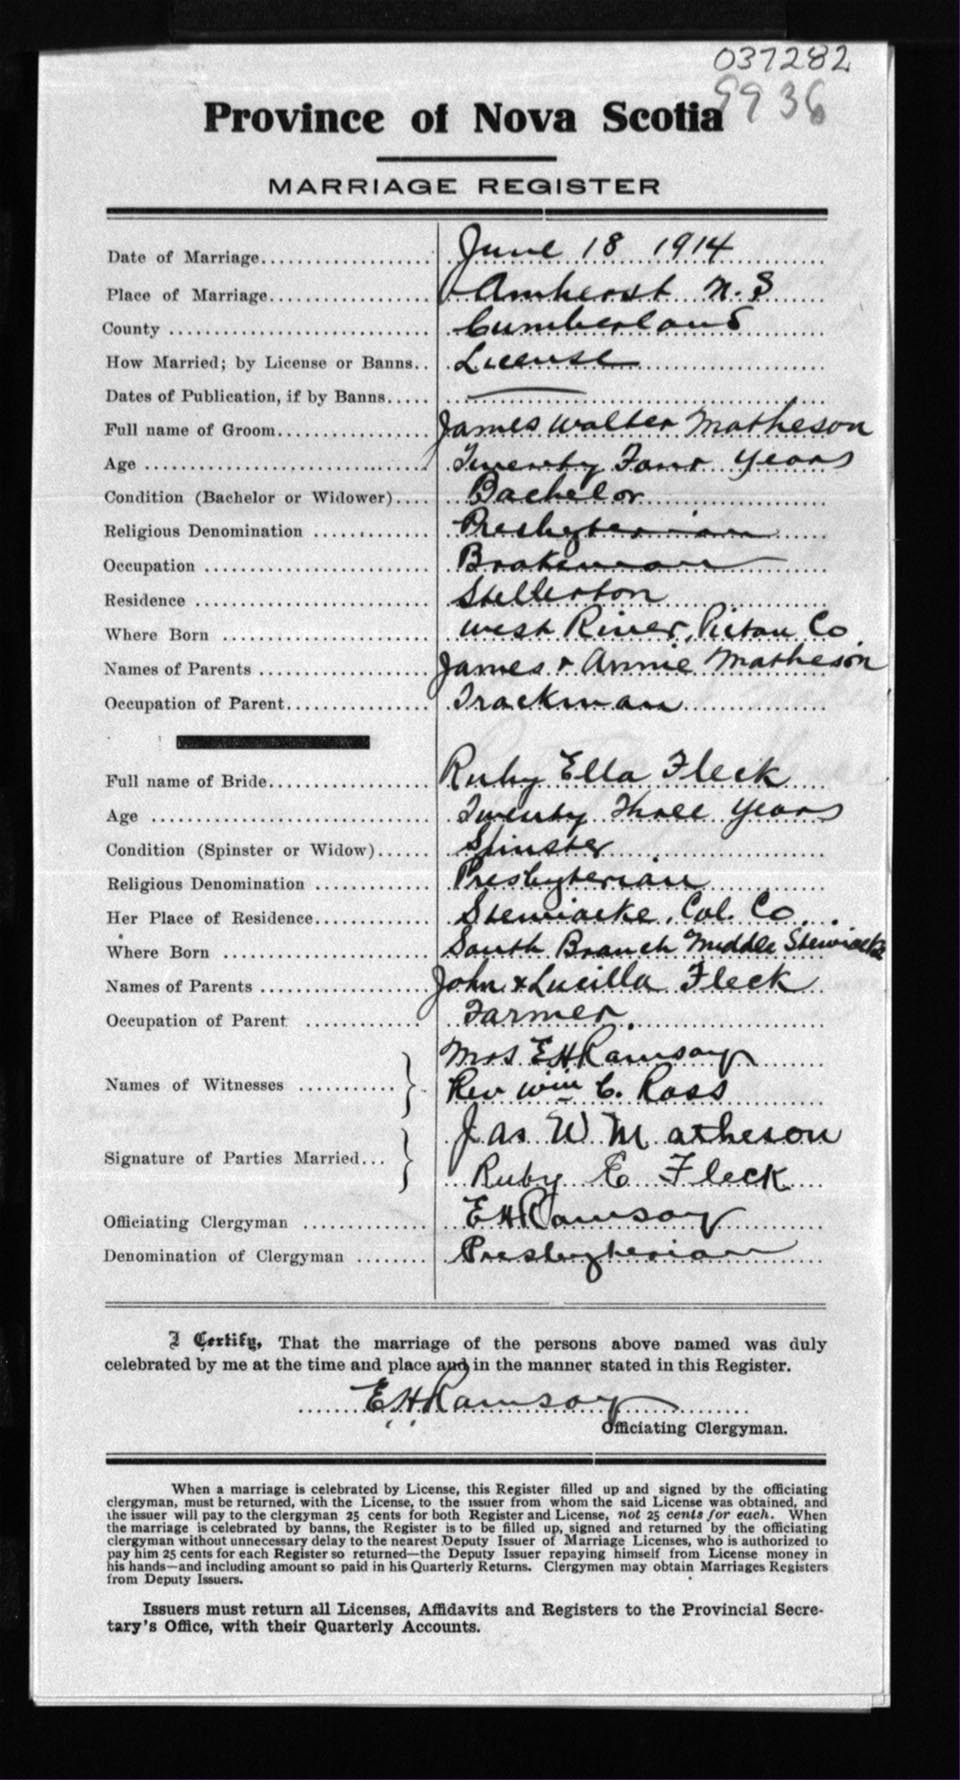 037282
9936
Province of Nova Scotia
MARRIAGE REGISTER
Date of Marriage.................... June 18 1914
Place of Marriage................... Amherst N.S
County .............................. Cumberland
How Married; by License or Banns.. License
Dates of Publication, if by Banns.....
Full name of Groom................. James Walter Matheson
Age ................................. Twenty Four years
Condition (Bachelor or Widower).... Bachelor
Religious Denomination ............. Presbyterian
Occupation .......................... Brakeman
Residence ........................... Stellerton
Where Born ........................ West River, Pictou Co
Names of Parents ................... James & Annie Matheson
Occupation of Parent................ Trackman
Full name of Bride.................. Ruby Ella Fleck
Age ................................. Twenty Three years
Condition (Spinster or Widow)...... Spinster
Religious Denomination ............. Presbyterian
Her Place of Residence............. Stewiacke, Col. Co.
Where Born ........................ South Branch Middle Stewiacke
Names of Parents ................... John & Lucilla Fleck
Occupation of Parent ............. Farmer.
Names of Witnesses ........... } Mrs E H Ramsay
Rev Wm C. Ross
Signature of Parties Married... } Jas W Matheson
Ruby E Fleck
Officiating Clergyman .............. E H Ramsay
Denomination of Clergyman ........ Presbyterian
I Certify, That the marriage of the persons above named was duly
celebrated by me at the time and place and in the manner stated in this Register.
E H Ramsay
Officiating Clergyman.
When a marriage is celebrated by License, this Register filled up and signed by the officiating
clergyman, must be returned, with the License, to the issuer from whom the said License was obtained, and
the issuer will pay to the clergyman 25 cents for both Register and License, not 25 cents for each. When
the marriage is celebrated by banns, the Register is to be filled up, signed and returned by the officiating
clergyman without unnecessary delay to the nearest Deputy Issuer of Marriage Licenses, who is authorized to
pay him 25 cents for each Register so returned—the Deputy Issuer repaying himself from License money in
his hands—and including amount so paid in his Quarterly Returns. Clergymen may obtain Marriages Registers
from Deputy Issuers.
Issuers must return all Licenses, Affidavits and Registers to the Provincial Secre-
tary's Office, with their Quarterly Accounts.